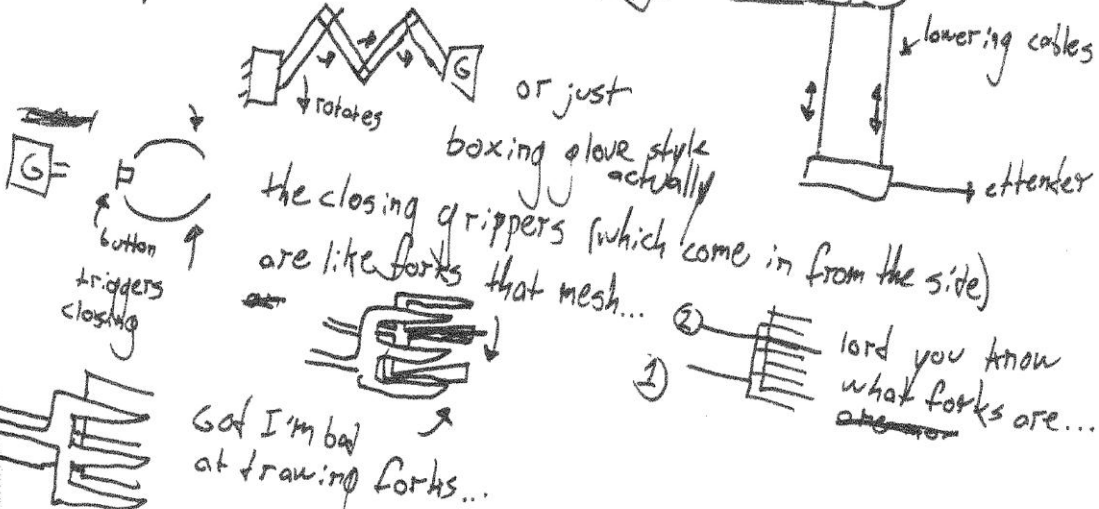 lowering cables
G
rotates
or just
boxing glove style
actually
G
extender
button
triggers
closing
the closing grippers (which come in from the side)
are like forks that mesh...
2
1
lord you know
what forks are...
God I'm bad
at drawing forks...